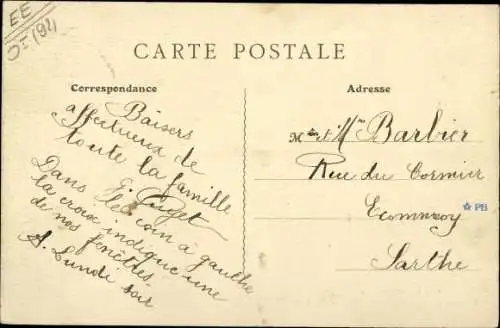 EE
CARTE POSTALE
Correspondance
Baisers
affectueux de
toute la famille
G. Puget
Dans le coin à gauche
la croix indique une
de nos fenêtres.
A Lundi soir
Adresse
Mr et Mme Barbier
Rue du Cormier
Ecommoy
PB
Sarthe